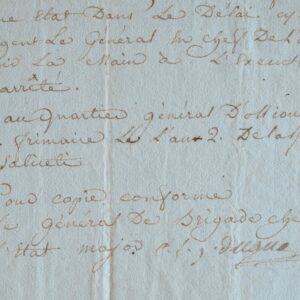 ne Etat Dans Le Délai cy
gent Le Général En chef De L
La Main à L'Execut
arrêté.
au Quartier général D'Olliou
frimaire L'an 2. De la
Saliceti
Pour copie conforme
le général De Brigade che
l'Etat major